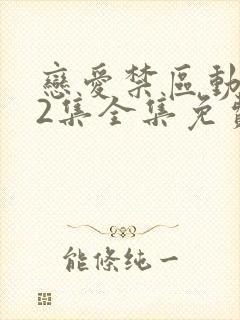 戀愛禁區動
2集全集免費
能條純一